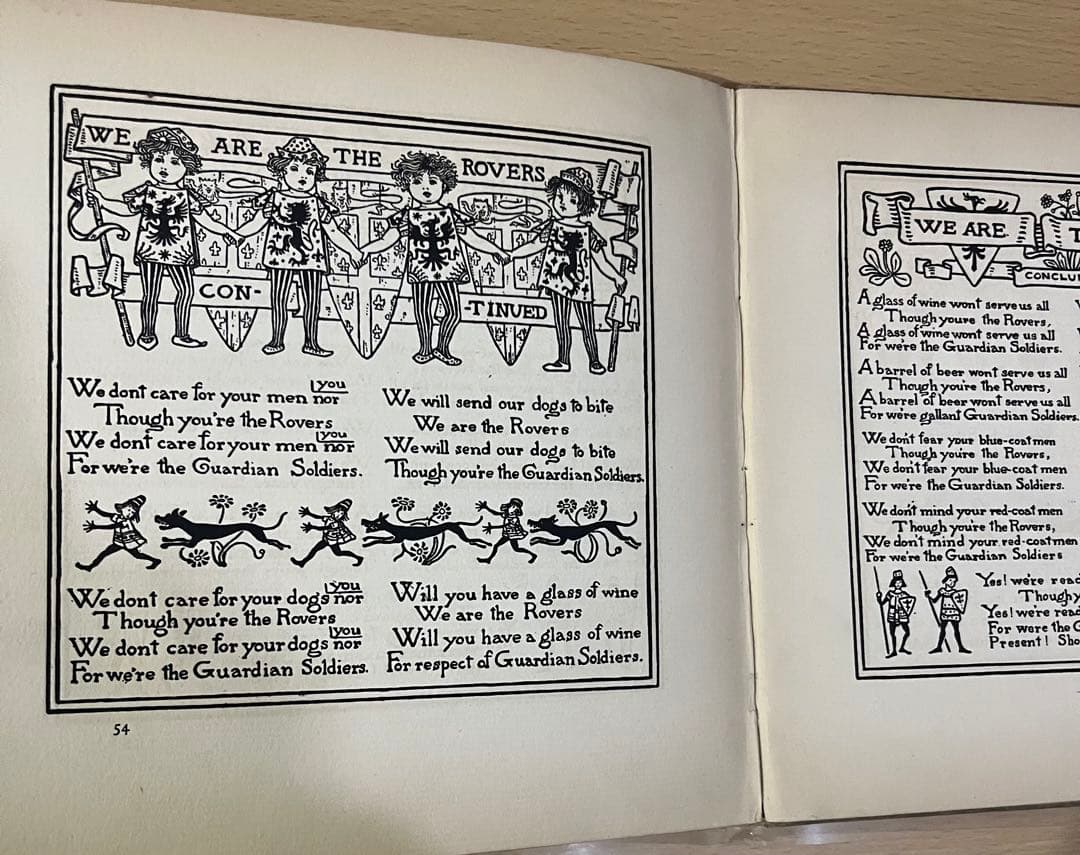 WE ARE THE ROVERS
CON-
-TINUED
We dont care for your men nor you
Though you're the Rovers
We dont care for your men nor you
For we're the Guardian Soldiers.
We dont care for your dogs nor you
Though you're the Rovers
We dont care for your dogs nor you
For we're the Guardian Soldiers.
We will send our dogs to bite
We are the Rovers
We will send our dogs to bite
Though you're the Guardian Soldiers.
Will you have a glass of wine
We are the Rovers
Will you have a glass of wine
For respect of Guardian Soldiers.
54
WE ARE
A glass of wine wont serve us all
Though youre the Rovers,
A glass of wine wont serve us all
For we're the Guardian Soldiers.
A barrel of beer wont serve us all
Though you're the Rovers,
A barrel of beer wont serve us all
For we're gallant Guardian Soldiers.
We don't fear your blue-coat men
Though you're the Rovers,
We don't fear your blue-coat men
For we're the Guardian Soldiers.
We don't mind your red-coat men
Though you're the Rovers,
We don't mind your red-coat men
For we're the Guardian Soldiers
Yes! we're
Though
Yes! we're
For were the
Present!